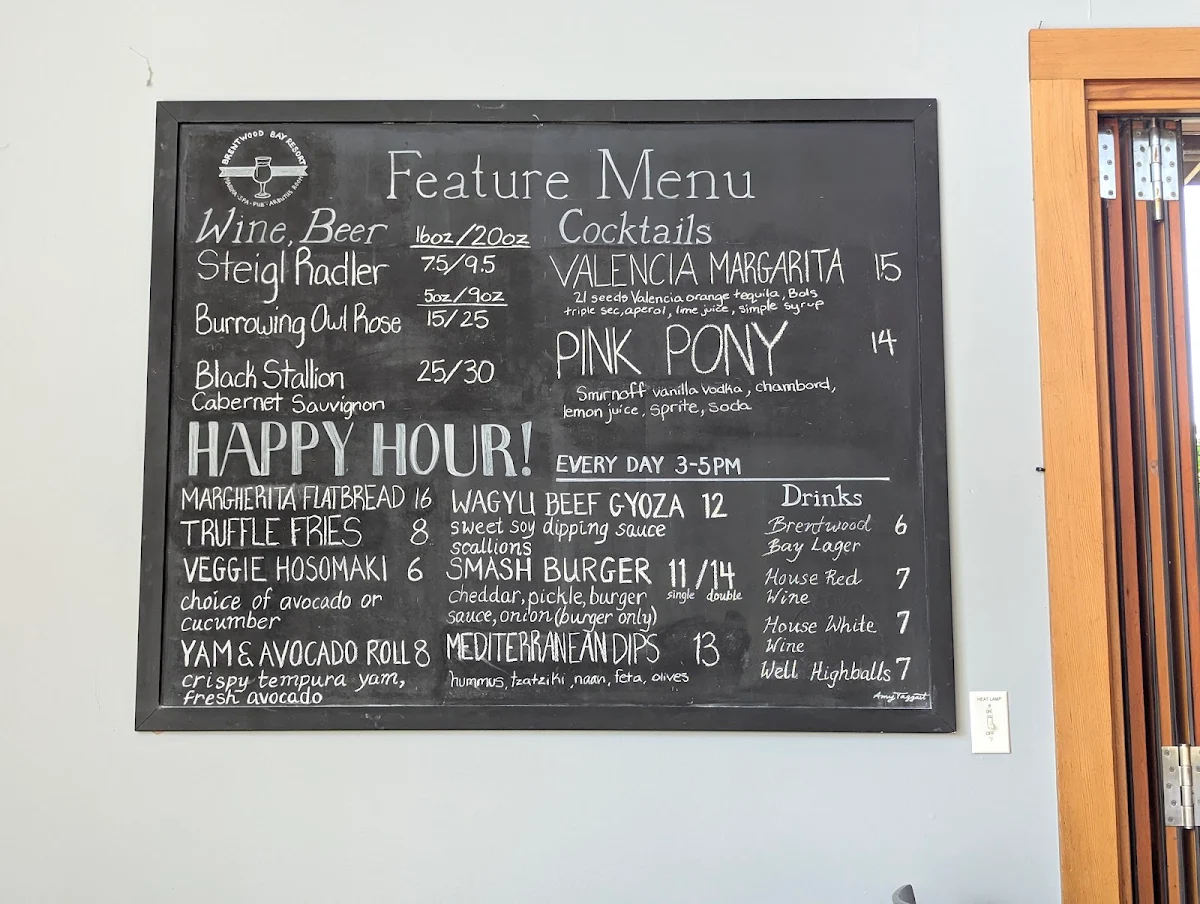 BRENTWOOD BAY RESORT
MARINA · SPA · PUB · ARBUTUS ROOM
Feature Menu
Wine, Beer 16oz/20oz
Steigl Radler 7.5/9.5
5oz/9oz
Burrowing Owl Rose 15/25
Black Stallion 25/30
Cabernet Sauvignon
Cocktails
VALENCIA MARGARITA 15
21 seeds Valencia orange tequila, Bols
triple sec, aperol, lime juice, simple syrup
PINK PONY 14
Smirnoff vanilla vodka, chambord,
lemon juice, sprite, soda
HAPPY HOUR! EVERY DAY 3-5PM
MARGHERITA FLATBREAD 16
TRUFFLE FRIES 8
VEGGIE HOSOMAKI 6
choice of avocado or
cucumber
YAM & AVOCADO ROLL 8
crispy tempura yam,
fresh avocado
WAGYU BEEF GYOZA 12
sweet soy dipping sauce
scallions
SMASH BURGER 11/14
single double
cheddar, pickle, burger
sauce, onion (burger only)
MEDITERRANEAN DIPS 13
hummus, tzatziki, naan, feta, olives
Drinks
Brentwood 6
Bay Lager
House Red 7
Wine
House White 7
Wine
Well Highballs 7
Amy Taggart
HEAT LAMP
ON
OFF